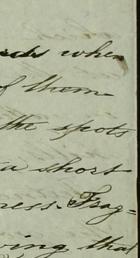 when
of them
the spots
a short
ness. Frag=
ing that